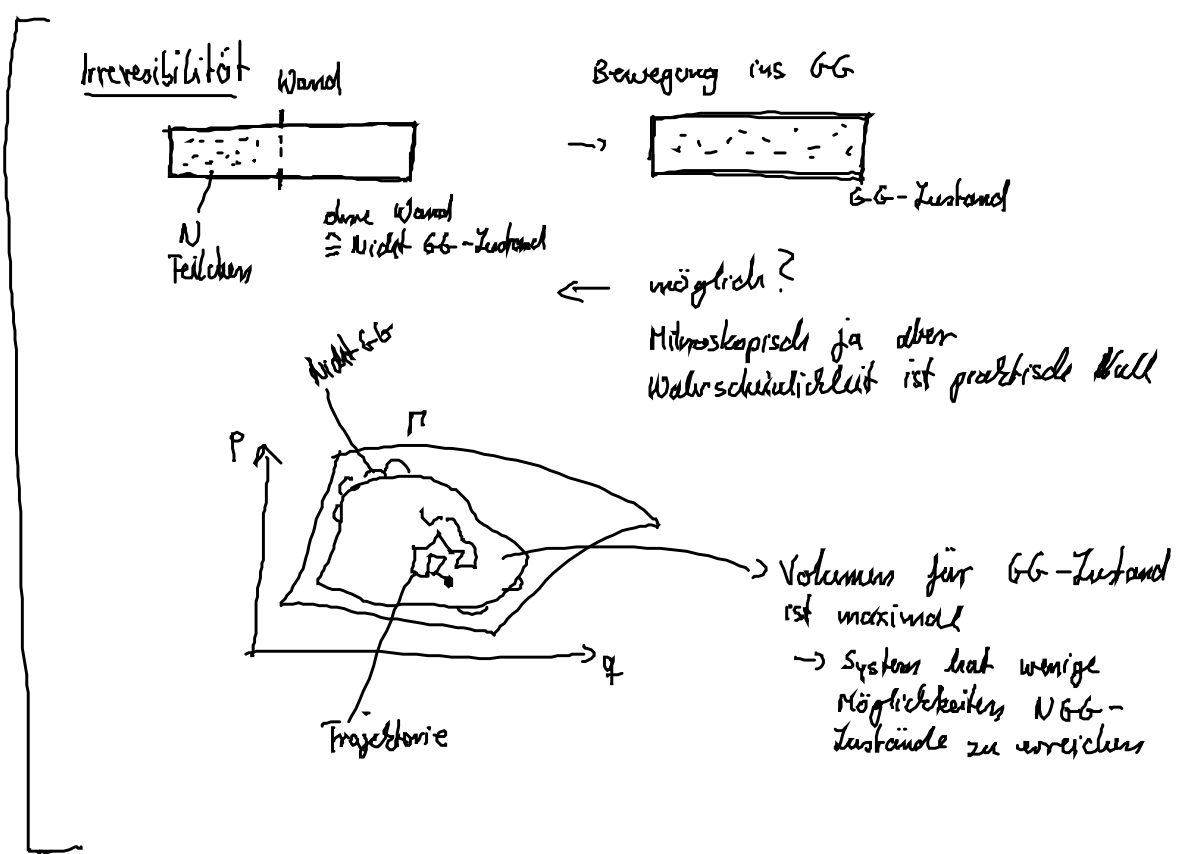 Irreversibilität
Wand
Bewegung ins GG
→
N
Teilchen
ohne Wand
≙ Nicht GG-Zustand
GG-Zustand
← möglich?
Mikroskopisch ja aber
Wahrscheinlichkeit ist praktisch Null
Nicht GG
Γ
P
q
Trajektorie
→ Volumen für GG-Zustand
ist maximal
→ System hat wenige
Möglichkeiten NGG-
Zustände zu erreichen